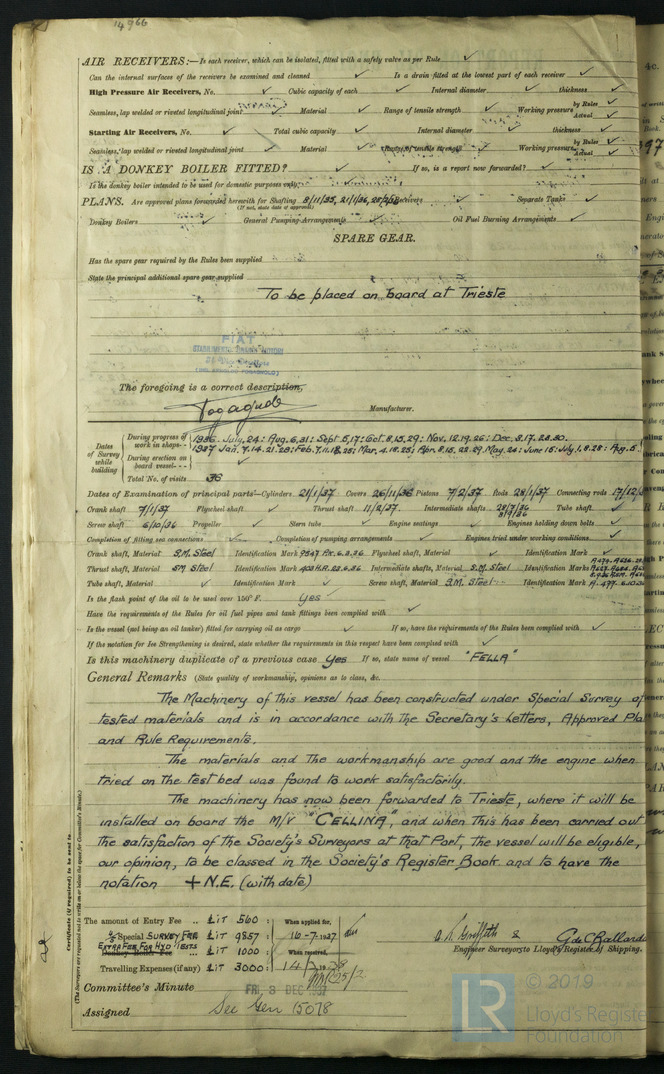 14966
AIR RECEIVERS:—Is each receiver, which can be isolated, fitted with a safety valve as per Rule ✓
Can the internal surfaces of the receivers be examined and cleaned ✓ Is a drain fitted at the lowest part of each receiver ✓
High Pressure Air Receivers, No. ✓ Cubic capacity of each ✓ Internal diameter ✓ thickness ✓
Seamless, lap welded or riveted longitudinal joint ✓ Material ✓ Range of tensile strength ✓ Working pressure by Rules ✓ Actual ✓
Starting Air Receivers, No. ✓ Total cubic capacity ✓ Internal diameter ✓ thickness ✓
Seamless, lap welded or riveted longitudinal joint ✓ Material ✓ Range of tensile strength ✓ Working pressure by Rules ✓ Actual ✓
IS A DONKEY BOILER FITTED? ✓ If so, is a report now forwarded? ✓
Is the donkey boiler intended to be used for domestic purposes only
PLANS. Are approved plans forwarded herewith for Shafting 8/11/35, 21/1/36, Receivers ✓ Separate Tanks ✓
(If not, state date of approval)
Donkey Boilers ✓ General Pumping Arrangements Oil Fuel Burning Arrangements ✓
SPARE GEAR.
Has the spare gear required by the Rules been supplied
State the principal additional spare gear supplied
To be placed on board at Trieste
FIAT
The foregoing is a correct description,
Manufacturer.
Dates of Survey while building
During progress of work in shops-- 1936. July, 24: Aug. 6, 31: Sept 5, 17: Oct. 8, 15, 29: Nov. 12. 19. 26: Dec. 3. 17. 28. 30.
During erection on board vessel--- 1937 Jan. 7. 14. 21. 28: Feb. 7. 11. 18. 25: Mar. 4. 18. 25: Apr. 8. 15. 22. 29. May. 24: June 15: July 1. 8. 28: Aug. 5
Total No. of visits 36
Dates of Examination of principal parts—Cylinders 21/1/37 Covers 26/11/36 Pistons 7/2/37 Rods 28/1/37 Connecting rods 17/12/3
Crank shaft 7/1/37 Flywheel shaft ✓ Thrust shaft 11/2/37 Intermediate shafts 28/7/36 Tube shaft ✓
Screw shaft 6/10/36 Propeller ✓ Stern tube ✓ Engine seatings ✓ Engines holding down bolts ✓
Completion of fitting sea connections ✓ Completion of pumping arrangements ✓ Engines tried under working conditions ✓
Crank shaft, Material S.M. Steel Identification Mark 9847 Flywheel shaft, Material ✓ Identification Mark ✓
Thrust shaft, Material SM Steel Identification Mark Intermediate shafts, Material S.M. Steel Identification Marks
Tube shaft, Material ✓ Identification Mark ✓ Screw shaft, Material S.M. Steel Identification Mark A. 477. 6.10.36
Is the flash point of the oil to be used over 150° F. Yes
Have the requirements of the Rules for oil fuel pipes and tank fittings been complied with ✓
Is the vessel (not being an oil tanker) fitted for carrying oil as cargo ✓ If so, have the requirements of the Rules been complied with ✓
If the notation for Ice Strengthening is desired, state whether the requirements in this respect have been complied with ✓
Is this machinery duplicate of a previous case Yes If so, state name of vessel "FELLA"
General Remarks (State quality of workmanship, opinions as to class, &c.
The Machinery of this vessel has been constructed under Special Survey of
tested materials and is in accordance with the Secretary's Letters, Approved Pla
and Rule Requirements.
The materials and the workmanship are good and the engine when
tried on the test bed was found to work satisfactorily.
The machinery has now been forwarded to Trieste, where it will be
installed on board the M/V "CELLINA", and when this has been carried out
the satisfaction of the Society's Surveyors at that Port, the vessel will be eligible,
our opinion, to be classed in the Society's Register Book. and to have the
notation + N.E. (with date)
Certificate (if required) to be sent to
(The Surveyors are requested not to write on or below the space for Committee's Minute.)
The amount of Entry Fee .. Lit 560 : When applied for,
Special SURVEY FEE Lit 9857 : 16-7-1937
EXTRA FEE FOR HYD TESTS
Donkey Boiler Fee .. Lit 1000 : When received,
Travelling Expenses (if any) Lit 3000 :
Engineer Surveyors to Lloyd's Register of Shipping.
Committee's Minute FRI, 3 DEC 1937
Assigned See Gen 15078
© 2019
LR Lloyd's Register
Foundation